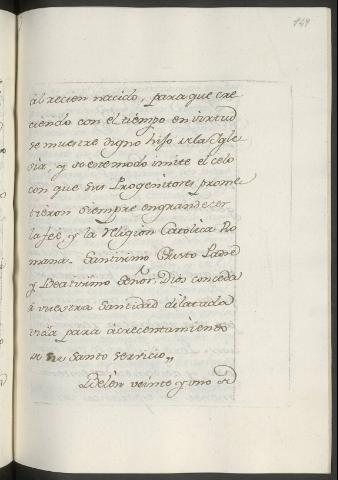 149
al recien nacido, para que cre
ciendo con el tiempo en virtud
se muestre digno hijo de la Igle
sia, y de este modo imite el celo
con que sus Progenitores prome
tieron siempre engrandecer
la feè y la Religion Catolica Ro
mana. Santisimo Padre
y Beatisimo Señor. Dios conceda
à vuestra Santidad dilatada
vida para acrecentamiento
de su Santo servicio,,
Belèn veinte y uno de